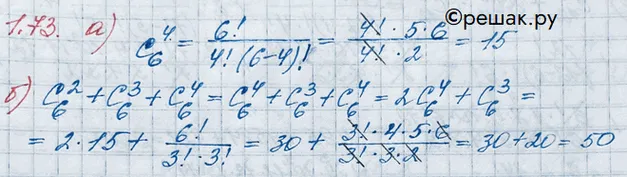 ©решак.ру
1.73. а) C₆⁴ = 6!/(4!(6-4)!) = (4!·5·6)/(4!·2) = 15
б) C₆² + C₆³ + C₆⁴ = C₆⁴ + C₆³ + C₆⁴ = 2C₆⁴ + C₆³ =
= 2·15 + 6!/(3!·3!) = 30 + (3!·4·5·6)/(3!·3·2) = 30+20 = 50